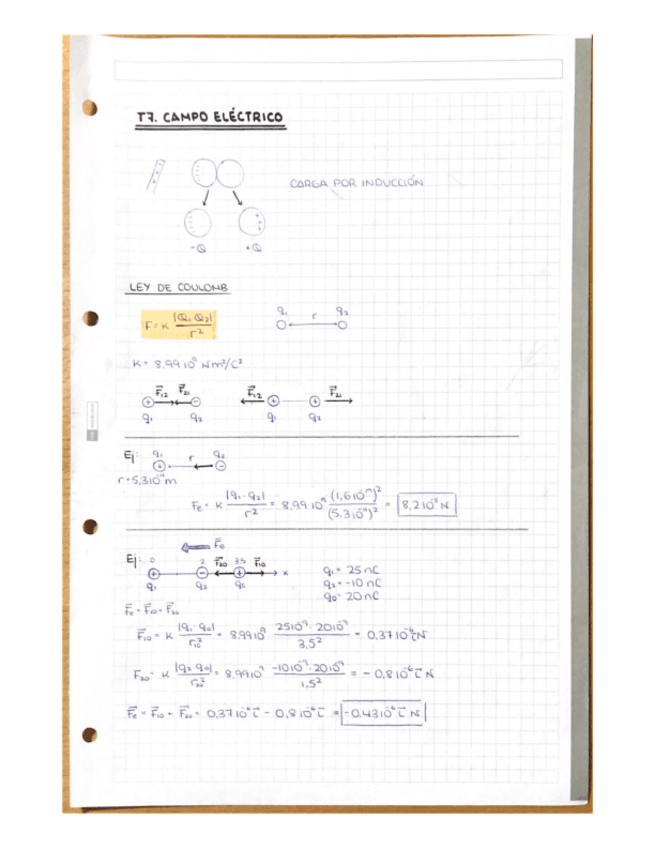 T7. CAMPO ELÉCTRICO
CARGA POR INDUCCIÓN
-Q +Q
LEY DE COULOMB
F = K |Q₁ Q₂| / r²
q₁ r q₂
K = 8,99 10⁹ Nm²/C²
F⃗₁₂ F⃗₂₁ F⃗₁₂ F⃗₂₁
q₁ q₂ q₁ q₂
Ej: q₁ r q₂
r = 5,3 10⁻¹¹ m
Fe = K |q₁ · q₂| / r² = 8,99 · 10⁹ (1,6 10⁻¹⁹)² / (5,3 10⁻¹¹)² = 8,2 10⁻⁸ N
F⃗e
Ej: 0 2 F⃗₂₀ 3,5 F⃗₁₀ x
q₁ q₂ q₀
q₁ = 25 nC
q₂ = -10 nC
q₀ = 20 nC
F⃗e = F⃗₁₀ + F⃗₂₀
F⃗₁₀ = K |q₁ · q₀| / r₁₀² = 8,99 10⁹ 25 10⁻⁹ · 20 10⁻⁹ / 3,5² = 0,37 10⁻⁶ i⃗ N
F₂₀ = K |q₂ q₀| / r₂₀² = 8,99 10⁹ -10 10⁻⁹ · 20 10⁻⁹ / 1,5² = -0,8 10⁻⁶ i⃗ N
F⃗e = F⃗₁₀ + F⃗₂₀ = 0,37 10⁻⁶ i⃗ - 0,8 10⁻⁶ i⃗ = -0,43 10⁻⁶ i⃗ N